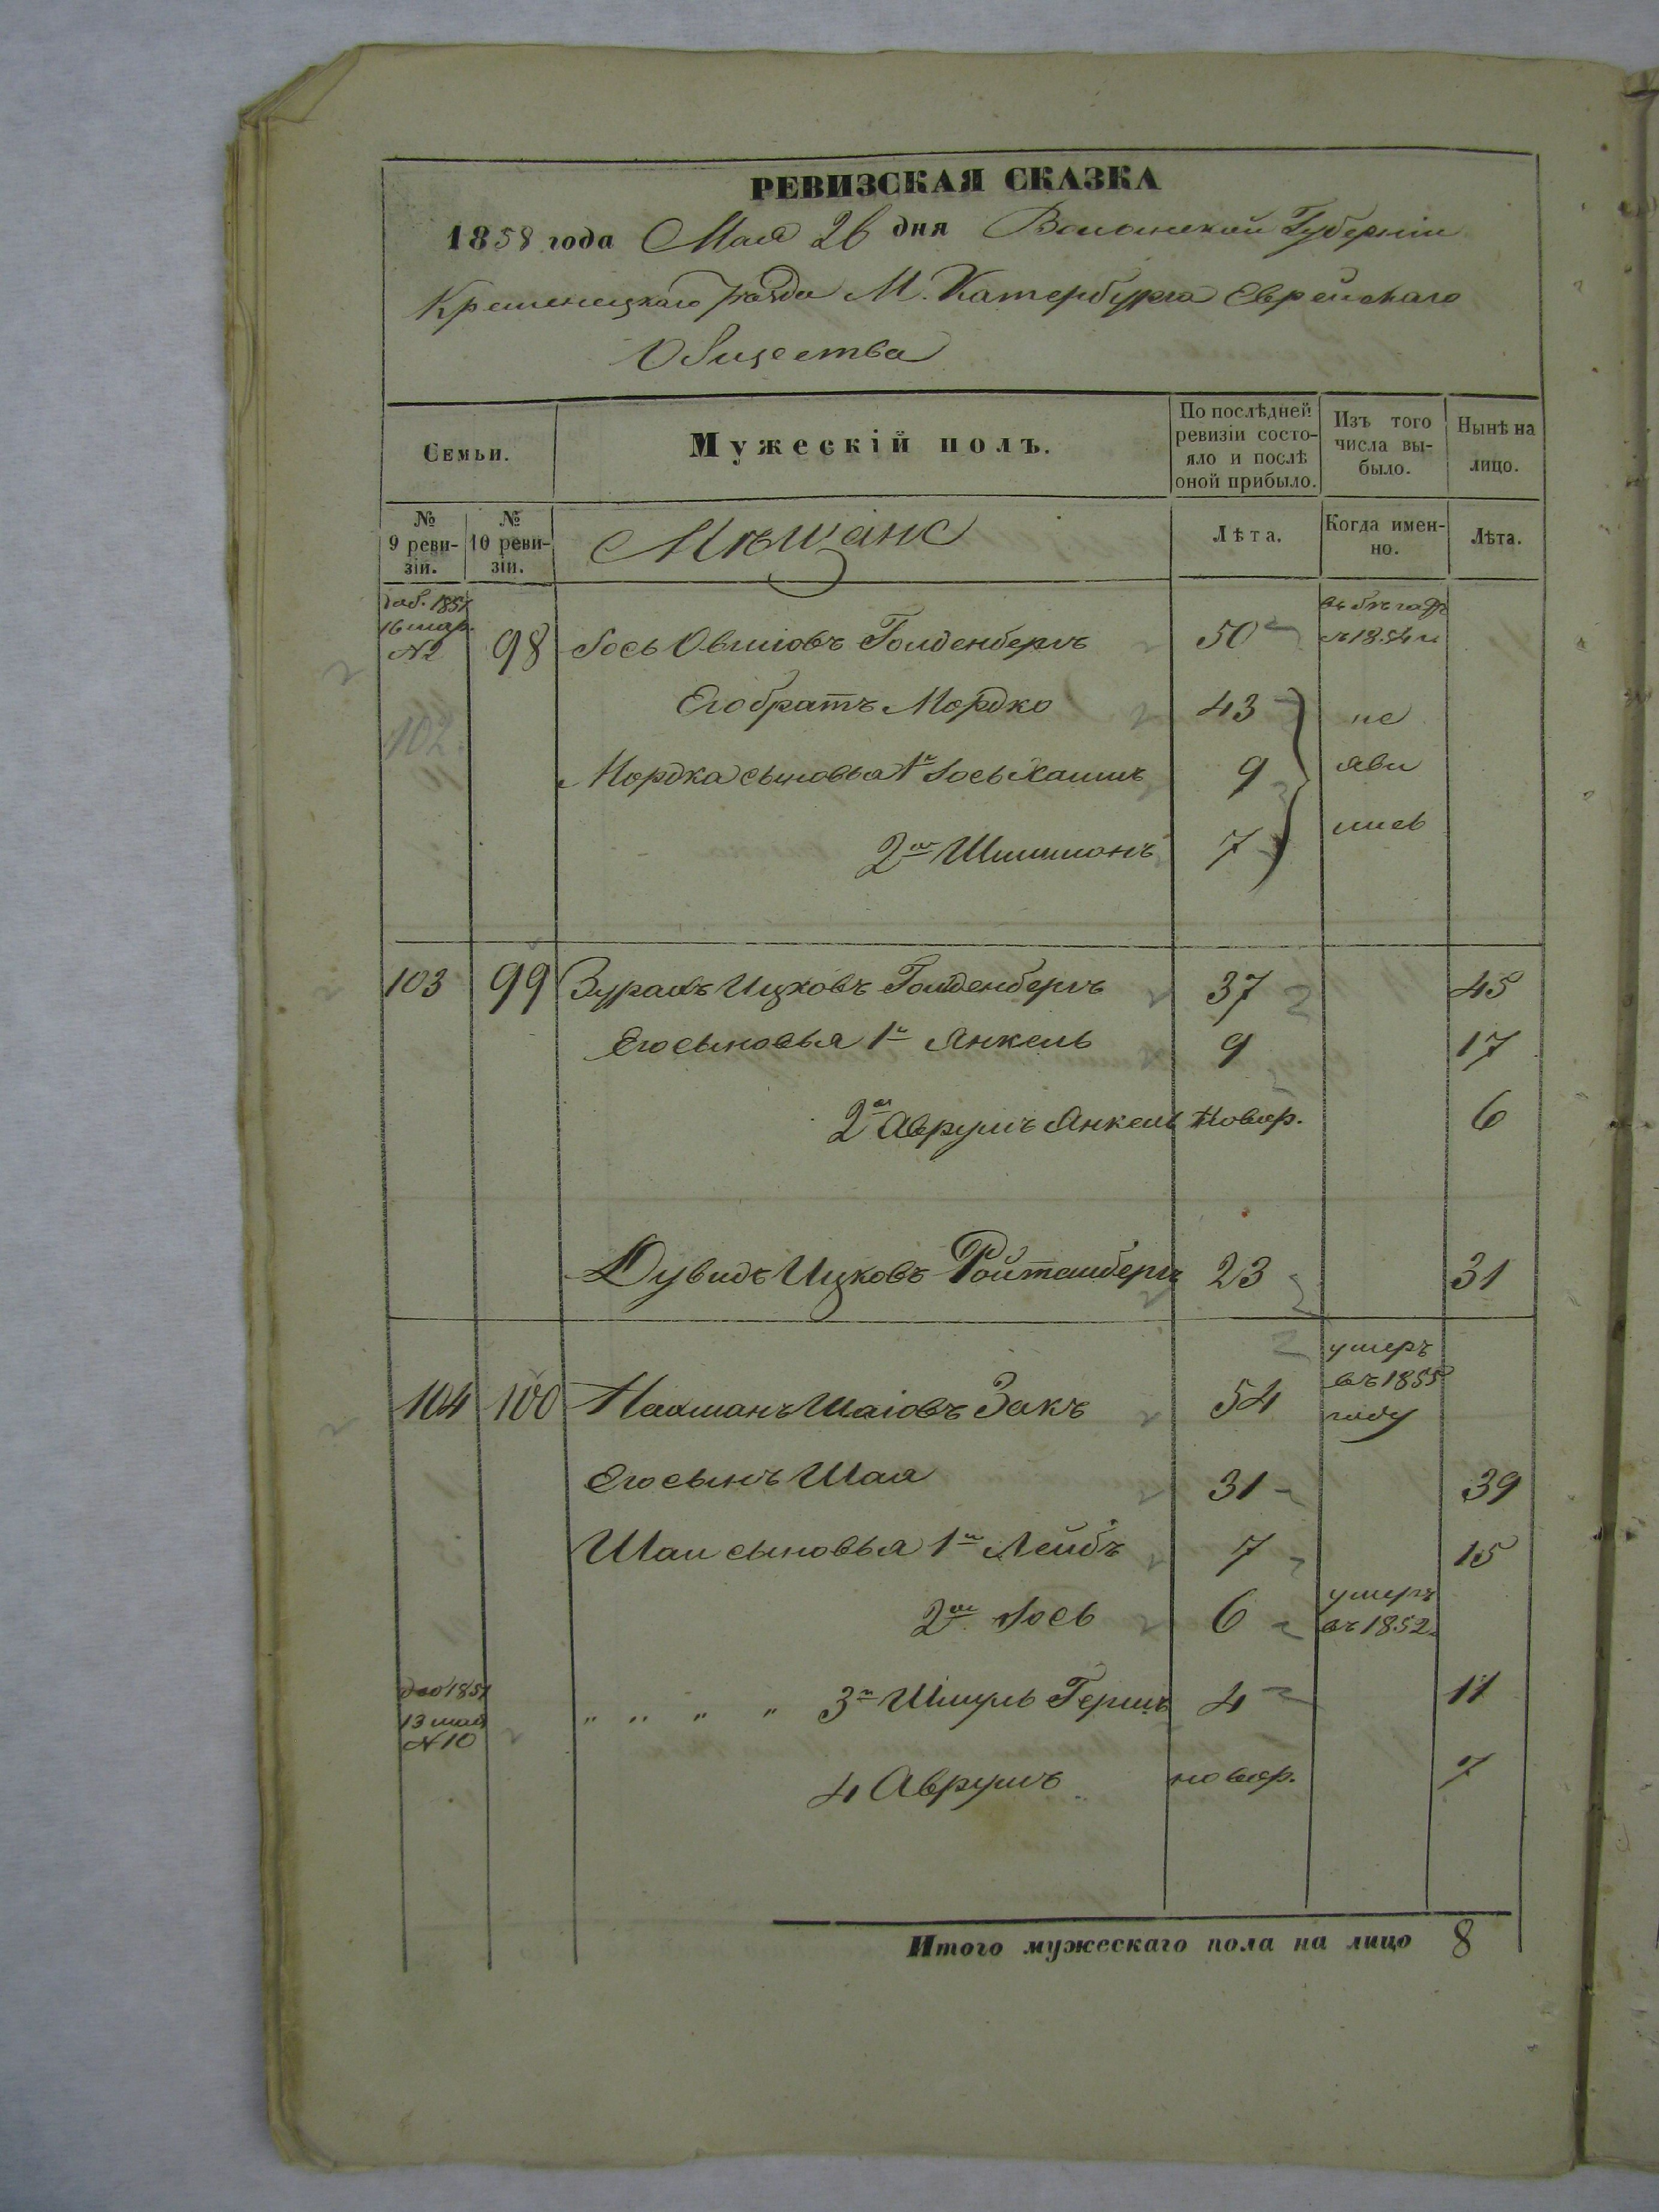 РЕВИЗСКАЯ СКАЗКА
1858 года Мая 26 дня Волынской Губерніи
Кременецкаго уѣзда М. Катербурга Еврейскаго
Общества
Семьи.
Мужескій полъ.
По послѣдней ревизіи состояло и послѣ оной прибыло.
Изъ того числа выбыло.
Нынѣ на лицо.
№ 9 ревизіи.
№ 10 ревизіи.
Мѣщане
Лѣта.
Когда именно.
Лѣта.
доб. 1851
16 мар.
№2 98 Іось Овшіовъ Голденбергъ 50 въ бѣгахъ съ 1854 г.
102. Его братъ Мордко 43 не
Мордка сыновья 1й Іось Хаимъ 9 яви
2й Шлиомонъ 7 лись
103 99 Зурахъ Ицковъ Голденбергъ 37 45
Его сыновья 1й Янкель 9 17
2й Аврумъ Янкель новор. 6
Дувидъ Ицковъ Ройтанберг 23 31
104 100 Нахманъ Шаіовъ Закъ 54 умеръ въ 1855 году
Его сынъ Шая 31 39
Шаи сыновья 1й Лейбъ 7 15
2й Іось 6 умеръ въ 1852.
доб 1851
13 мая
№ 10 " " " " 3й Шмуль Гершъ 4 11
4 Аврумъ новор. 7
Итого мужескаго пола на лицо 8